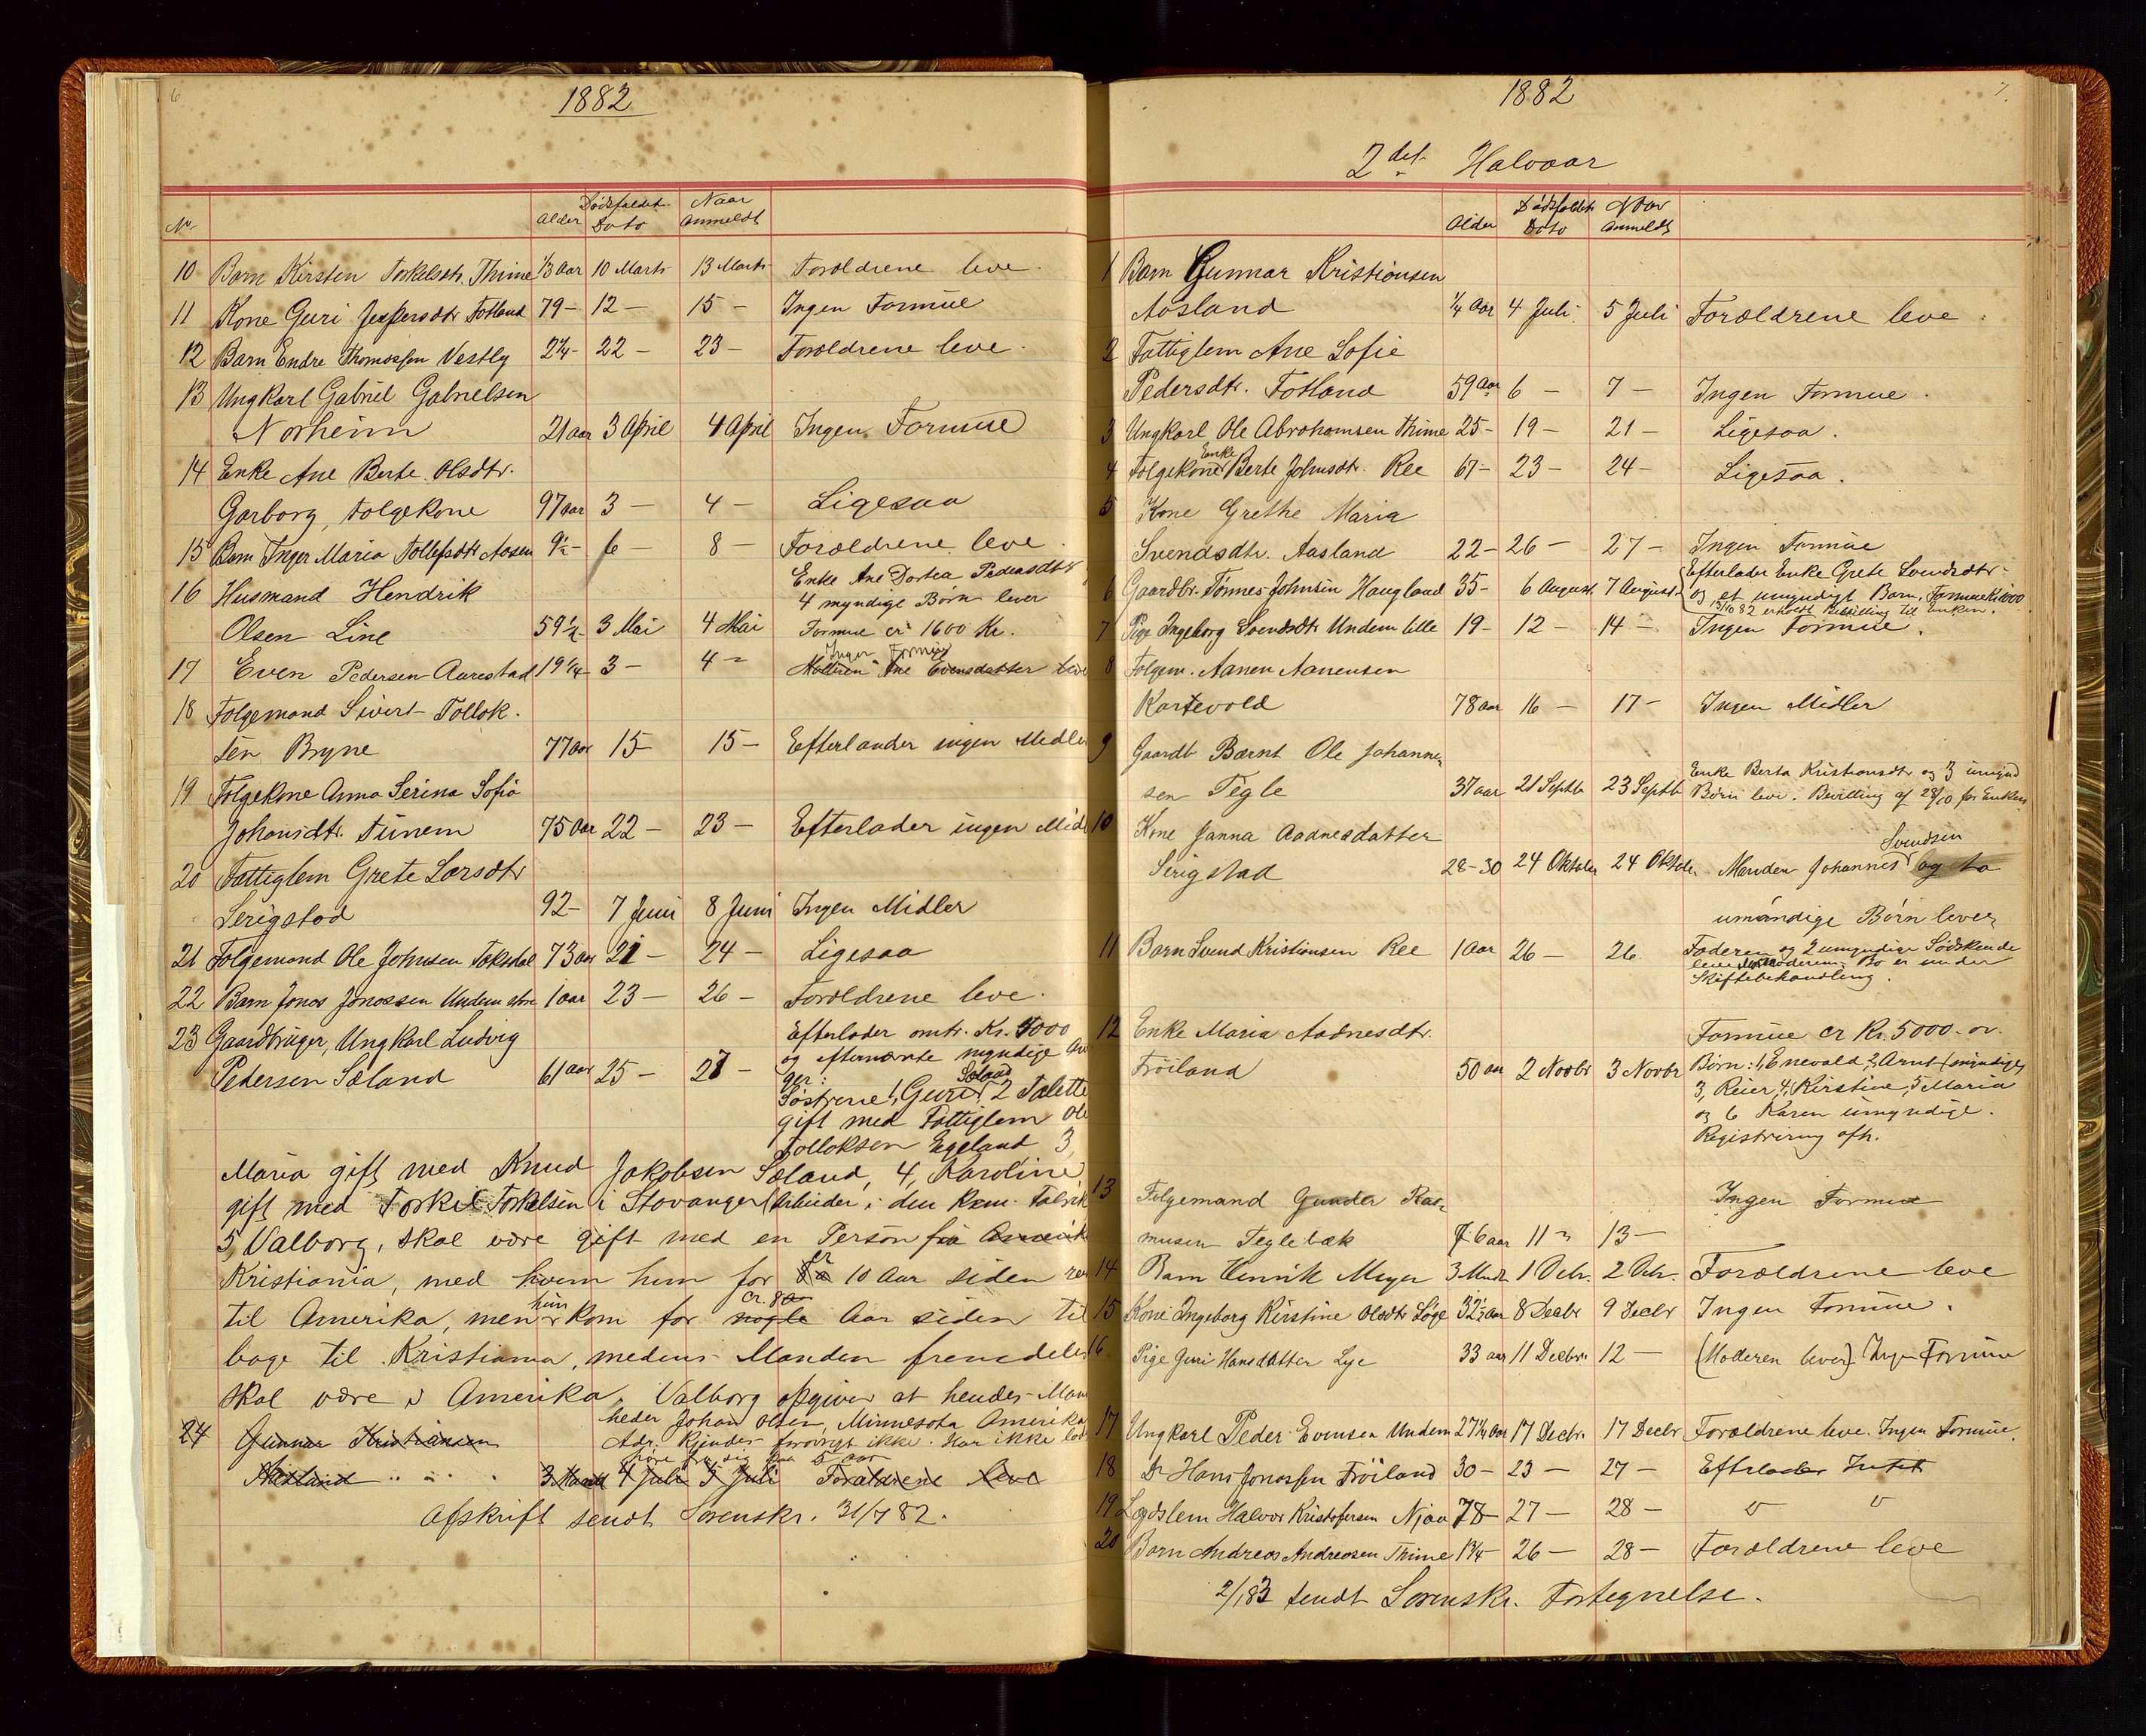 6
1882
No Alder Dödsfaldet Dato Naar Anmeldt
10 Barn Kirsten Torkelsdtr. Thime 1/3 Aar 10 Marts 13 Marts Forældrene leve.
11 Kone Guri Jespersdtr Fotland 79 - 12 - 15 - Ingen Formue
12 Barn Endre Thomassen Vestly 2 1/4 - 22 - 23 - Forældrene leve.
13 Ungkarl Gabriel Gabrielsen
Norheim 21 aar 3 April 4 April Ingen Formue
14 Enke Ane Berte Olsdtr.
Garborg, Folgekone 97 aar 3 - 4 - Ligesaa
15 Barn Inger Maria Tollefsdtr Aasen 9 1/2 - 6 - 8 - Forældrene leve.
Enke Ane Dortea Pedersdtr
16 Husmand Hendrik 4 myndige Børn lever
Olsen Line 59 1/2 - 3 Mai 4 Mai Formue cr 1600 Kr.
Ingen Formue
17 Even Pedersen Aarestad 19 1/4 - 3 - 4 - Moderen Ane Evensdatter leve
18 Folgemand Sivert Tollok.
sen Bryne 77 Aar 15 15 - Efterlander ingen Midle
19 Folgekone Anna Serina Sofia
Johansdtr. Tunem 75 Aar 22 - 23 - Efterlader ingen Mid
20 Fattiglem Grete Larsdtr
Serigstad 92 - 7 Juni 8 Juni Ingen Midler
21 Folgemand Ole Johnsen Taksdal 73 aar 21 - 24 - Ligesaa
22 Barn Jonas Jonassen Undem store 1 aar 23 - 26 - Forældrene leve.
23 Gaardbruger, Ungkarl Ludvig Efterlader omtr. Kr. 4000
og efternævnte myndige Ar
Pedersen Sæland 61 aar 25 - 27 - ger:
Sæland
Søstrene 1, Guri, 2 Talette
gift med Fattiglem Ole
Tolloksen Egeland 3,
Maria gift med Knud Jakobsen Sæland, 4, Karoline
gift med Torkel Torkelsen i Stavanger (Arbeider i den Kem. Fabrik
5, Valborg, skal være gift med en Person fra Amerik
Kristiania, med hvem hun for cr 10 Aar siden rei
hun cr. 8
til Amerika, men kom for nogle Aar siden til
bage til Kristiania, medens Manden fremdeles
skal være i Amerika. Valborg opgiver at hendes Man
heder Johan Olsen, Minnesota Amerika
24 Gunnar Kristiansen Adr. kjendes forøvrigt ikke. Har ikke lad
høre fra sig paa 5 aar
Aasland 3 Maaned 4 Juli 5 Juli Forældrene leve
Afskrift sendt Sorenskr. 31/7 82.
7.
1882
2det Halvaar
Alder Dødsfaldet Dato Naar Anmeldt
1 Barn Gunnar Kristiansen
Aasland 1/4 Aar 4 Juli 5 Juli Forældrene leve.
2 Fattiglem Ane Sofie
Pedersdtr. Fotland 59 Aar 6 - 7 - Ingen Formue.
3 Ungkarl Ole Abrahamsen Thime 25 - 19 - 21 - Ligesaa.
Enke
4 Folgekone Berte Johnsdtr. Ree 67 - 23 - 24 - Ligesaa.
5 Kone Grethe Maria
Svendsdtr. Aasland 22 - 26 - 27 - Ingen Formue
Efterlader Enke Grete Svendsdtr
6 Gaardbr. Tønnes Johnsen Haugland 35 - 6 August 7 August og et umyndigt Barn, Formue Kr 1000
13/10 82 erholdt Bevilling til Enken.
7 Pige Ingeborg Svendsdtr Undem lille 19 - 12 - 14 - Ingen Formue.
8 Folgem. Aanen Aanensen
Kartevold 78 aar 16 - 17 - Ingen Midler
9 Gaardb Bærnt Ole Johanne
Enke Berta Kristiansdtr og 3 umynd
sen Tegle 37 aar 21 Septb 23 Septb Børn leve. Bevilling af 28/10 for Enken
10 Kone Janna Aadnesdatter
Svendsen
Serigstad 28-30 24 Oktober 24 Oktober Manden Johannes og to
umyndige Børn lever
11 Barn Svend Kristiansen Ree 1 Aar 26 - 26. Faderen og 2 umyndige Sødskende
lever. Moderens Bo er under
Skiftebehandling.
12 Enke Maria Aadnesdtr. Formue cr Kr. 5000.
Fröiland 50 aar 2 Novbr 3 Novbr Børn: 1, Enevald, 2, Arnt (myndige)
3, Reier, 4, Kirstine, 5, Maria
og 6 Karen umyndige.
Registrering afh.
13 Folgemand Gunder Ras Ingen Formue
musen Teglebæk 76 aar 11 - 13 -
14 Barn Henrik Meyer 3 Mndr 1 Decbr. 2 Decbr. Forældrene leve
15 Kone Ingeborg Kirstine Olsdtr Løge 32 1/2 aar 8 Decbr 9 Decbr Ingen Formue.
16 Pige Guri Hansdatter Lye 33 aar 11 Decbr 12 - (Moderen lever) Ingen Formue
17 Ungkarl Peder Evensen Undem 27 1/4 Aar 17 Decbr. 17 Decbr Forældrene leve. Ingen Formue.
18 Do Hans Jonassen Fröiland 30 - 23 - 27 - Efterlader Intet
19 Lægdslem Halvor Kristofersen Njaa 78 - 27 - 28 - " "
20 Barn Andreas Andreasen Thime 1 3/4 - 26 - 28 - Forældrene leve
2/1 83 sendt Sorenskr. Fortegnelse.